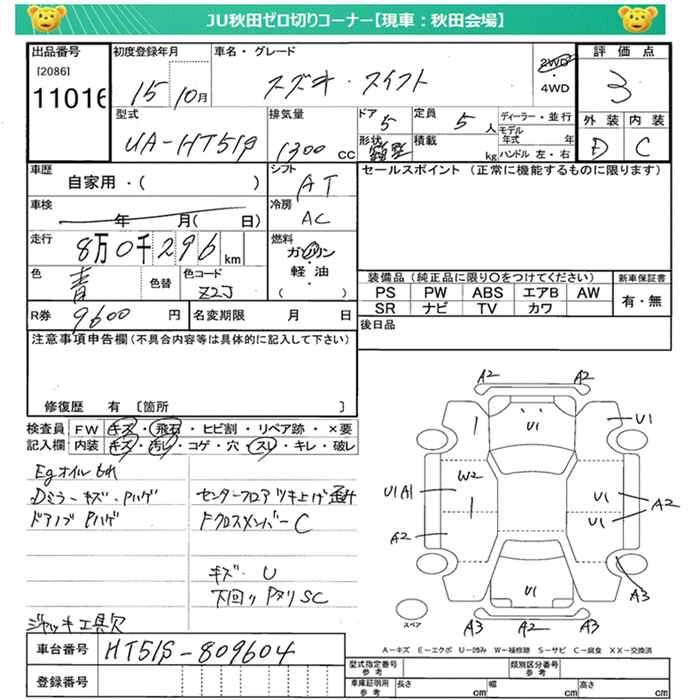 JU秋田ゼロ切りコーナー【現車：秋田会場】
出品番号 初度登録年月 車名・グレード 評価点
[2086] 11016 15 10月 スズキ・スイフト 2WD・4WD 3
型式 排気量 ドア 定員 ディーラー・並行 外装 内装
UA-HT51S 1300 CC 5 5人 モデル年式 年 D C
形状 積載 kg ハンドル 左・右
車歴 シフト セールスポイント (正常に機能するものに限ります)
自家用・( ) AT
車検 冷房
年 月( 日) AC
走行 燃料
8万0千296 km ガソリン
軽・油
( )
色 色替 色コード
青 Z2J
装備品 (純正品に限り○をつけてください) 新車保証書
PS PW ABS エアB AW 有・無
SR ナビ TV カワ
R券 9600 円 名変期限 月 日
後日品
注意事項申告欄(不具合内容等は具体的に記入して下さい)
修復歴 有 〔箇所 〕
検査員 FW キズ・飛石・ヒビ割・リペア跡・×要
記入欄 内装 キズ・汚レ・コゲ・穴・スレ・キレ・破レ
Egオイルもれ
Dミラーキズ・Pハゲ センターフロアツキ上げ
ドアノブPハゲ FクロスメンバーC
キズ・U
下回りPタリSC
ジャッキ工具欠
A2 A2
U1 U1
W2
U1A1 U1 A2
A2 U1
U1 A3
スペア A3 A2 A3
A－キズ E－エクボ U－凹み W－補修跡 S－サビ C－腐食 XX－交換済
車台番号 HT51S-809604
登録番号
型式指定番号 参考 類別区分番号 参考
車庫証明用 参考 長さ cm 幅 cm 高さ cm